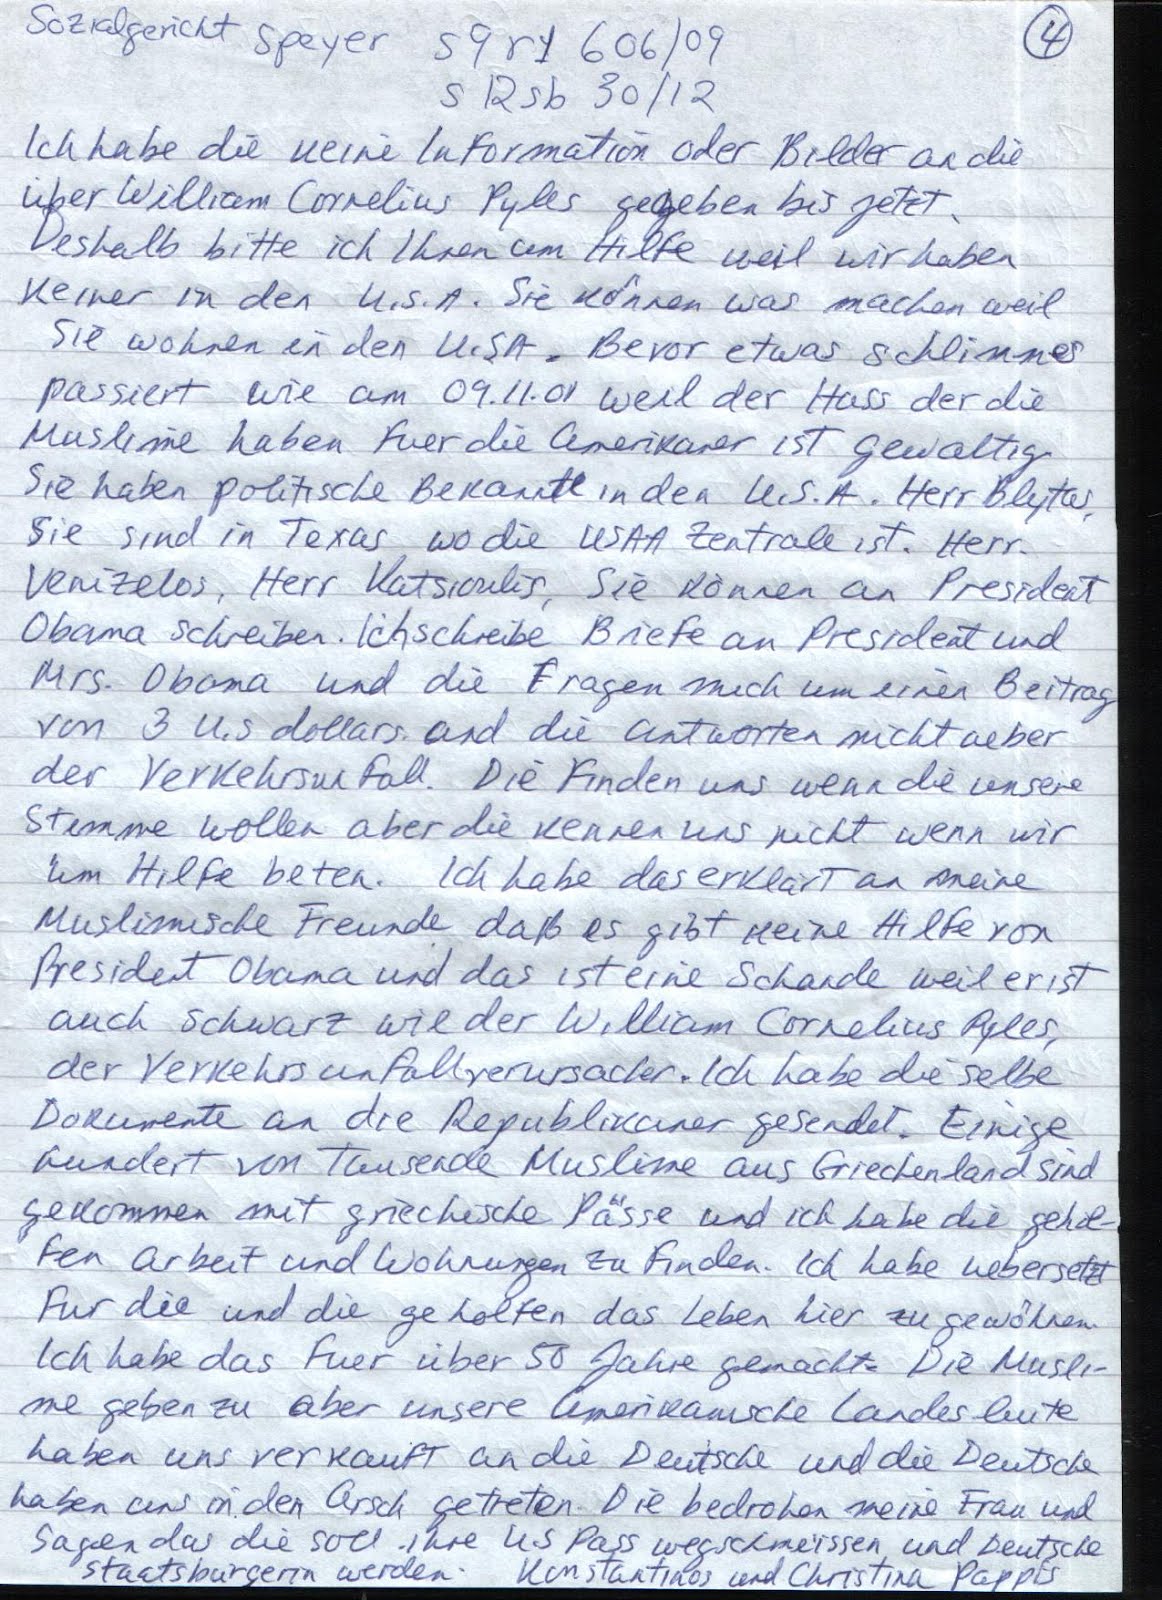 Sozialgericht Speyer S9 r1 606/09
④
S 12 sb 30/12
Ich habe die keine Information oder Bilder an die
über William Cornelius Pyles gegeben bis jetzt.
Deshalb bitte ich Ihnen um Hilfe weil wir haben
keiner in den U.S.A. Sie können was machen weil
Sie wohnen in den U.S.A. Bevor etwas schlimmes
passiert wie am 09.11.01 weil der Hass der die
Muslime haben fuer die Amerikaner ist gewaltig.
Sie haben politische Bekannte in den U.S.A. Herr Blytas,
Sie sind in Texas wo die USAA Zentrale ist. Herr
Venizelos, Herr Katsioulis, Sie können an President
Obama schreiben. Ich schreibe Briefe an President und
Mrs. Obama und die Fragen mich um einen Beitrag
von 3 U.S dollars. and die antworten nicht ueber
der Verkehrsunfall. Die Finden uns wenn die unsere
Stimme wollen aber die kennen uns nicht wenn wir
üm Hilfe beten. Ich habe das erklärt an meine
Muslimische Freunde daß es gibt keine Hilfe von
President Obama und das ist eine Schande weil er ist
auch schwarz wie der William Cornelius Pyles,
der Verkehrsunfallverursacher. Ich habe die selbe
Dokumente an die Republikaner gesendet. Einige
hundert von Tausende Muslime aus Griechenland sind
gekommen mit griechische Pässe und ich habe die gehol-
fen arbeit und Wohnungen zu finden. Ich habe uebersetzt
für die und die geholfen das Leben hier zu gewöhnen.
Ich habe das fuer über 50 Jahre gemacht. Die Musli-
me geben zu aber unsere Amerikanische Landesleute
haben uns verkauft an die Deutsche und die Deutsche
haben uns in den Arsch getreten. Die bedrohen meine Frau und
sagen das die soll ihre US Pass wegschmeissen und Deutsche
staatsbürgerin werden. Konstantinos und Christina Pappis